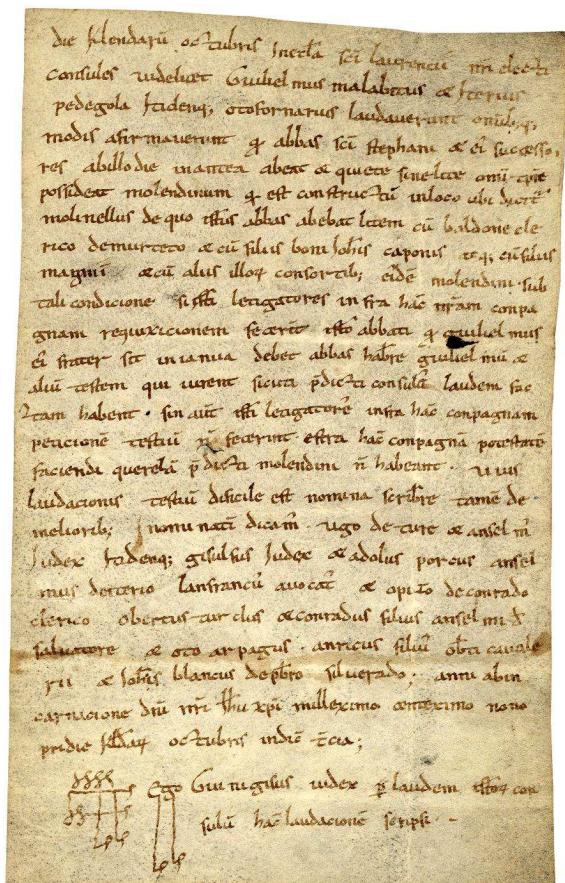 die klendarū octubris in ecctā sci laurencii nri electi
consules videlicet Guilielmus malabitus & Iterius
pedegola Itidenq; otofornarius laudaverunt omībꝫ
modis afirmaverunt ꝙ abbas sci stephani & ei successo
res abillo die inantea abeat & quiete sine lite omi tpre
possideat molendinum ꝙ est constructū inloco ubi dicitr
molinellus de quo istus abbas abebat litem cū baldone cle
rico demurteto & cū filiis boni Iohis caponis itēq; cū filiis
magini & cū aliis illoꝝ consortibꝫ eidē molendini sub
tali condicione si isti letigatores infra hāc nram conpa
gnam requixicionem fecerit isto abbati ꝙ guilielmus
ei frater sit inianua debet abbas habre guilielmū &
aliū testem qui iurent sicuti p̄dicti consulū laudem fac
tam habent. sin aut isti letigatore infra hāc conpagnam
peticionē testiū n̄ fecerint estra hāc conpagnā potestatē
faciendi querelā p̄dicti molendini n̄ habeant. uius
laudacionis testiū dificile est nomina scribre tamē de
meliorib; nonunati dicam. ugo de turc & anselm̄
Iudex Itidenq; gisulfus Iudex & adolus porcus ansel
mus deterio lanfrancū avocat & opizo deconrado
clerico obertus turclus & conradus filius anselmi d
salvatore & oto arpagus. anricus filiū obti cavale
rii & Iohis blancus depbro silverado; anni abin
carnacione dnī nri ihu xpi millesximo centeximo nono
pridie kldaꝝ octubris indic tcia;
Ego Guinigisus iudex p laudem istoꝝ con
sulū hāc laudacionē scripsi. -